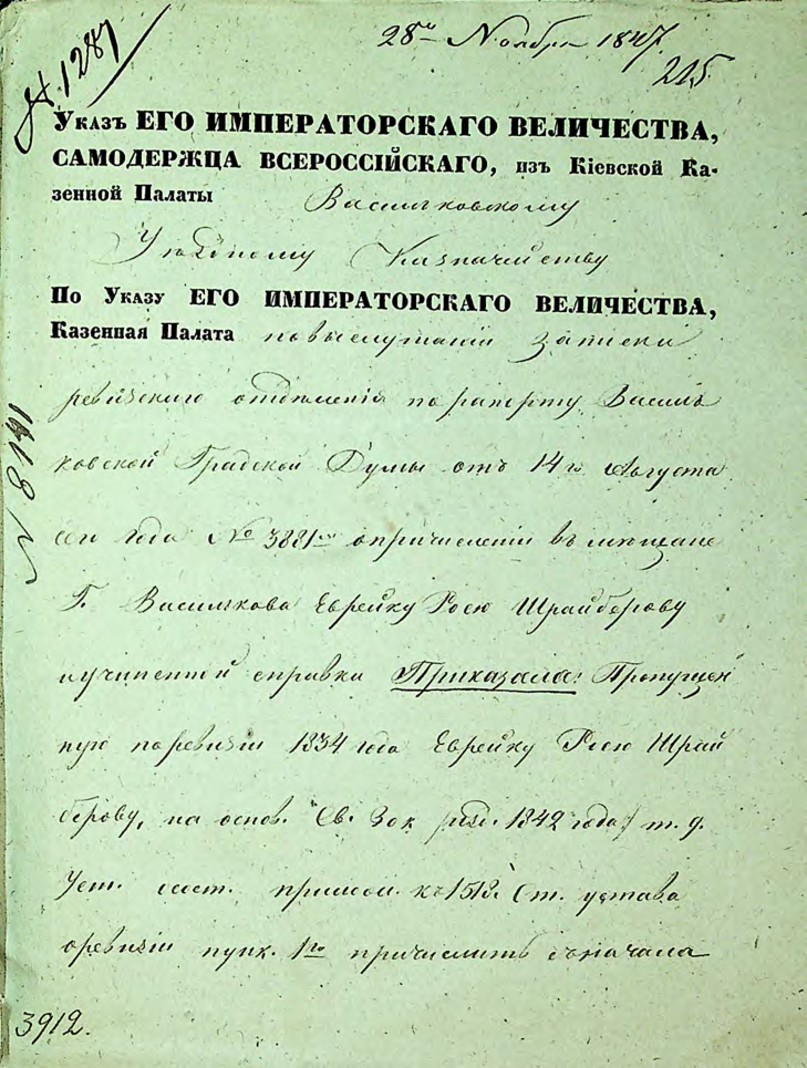 № 1287
28го Ноября 1847.
215
Указъ ЕГО ИМПЕРАТОРСКАГО ВЕЛИЧЕСТВА,
САМОДЕРЖЦА ВСЕРОССІЙСКАГО, изъ Кіевской Ка-
зенной Палаты Васильковскому
Уѣздному Казначейству
По Указу ЕГО ИМПЕРАТОРСКАГО ВЕЛИЧЕСТВА,
Казенная Палата по выслушаніи записки
ревизскаго отдѣленія по рапорту Василь
ковской Градской Думы отъ 14го Августа
сего года № 3881 о причисленіи въ мѣщане
Г. Василькова Еврейку Росю Шрайберову
и учиненной справки Приказала: Пропущен
ную по ревизіи 1834 года Еврейку Росю Шрай
берову, на основ. Св. Зак. изд. 1842 года т. 9.
Уст. сост. примѣч. къ 1512. Ст. устава
о ревизіи пунк. 1го причислить съ начала
3912.